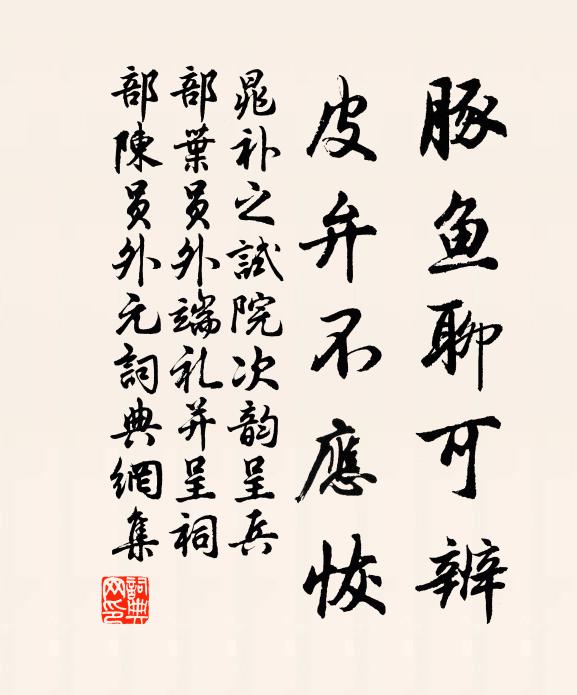 豚鱼聊可辨
皮弁不應恢
晁补之試院次韵呈兵
部葉員外端礼并呈祠
部陳員外元詞典網集
詞典
网印